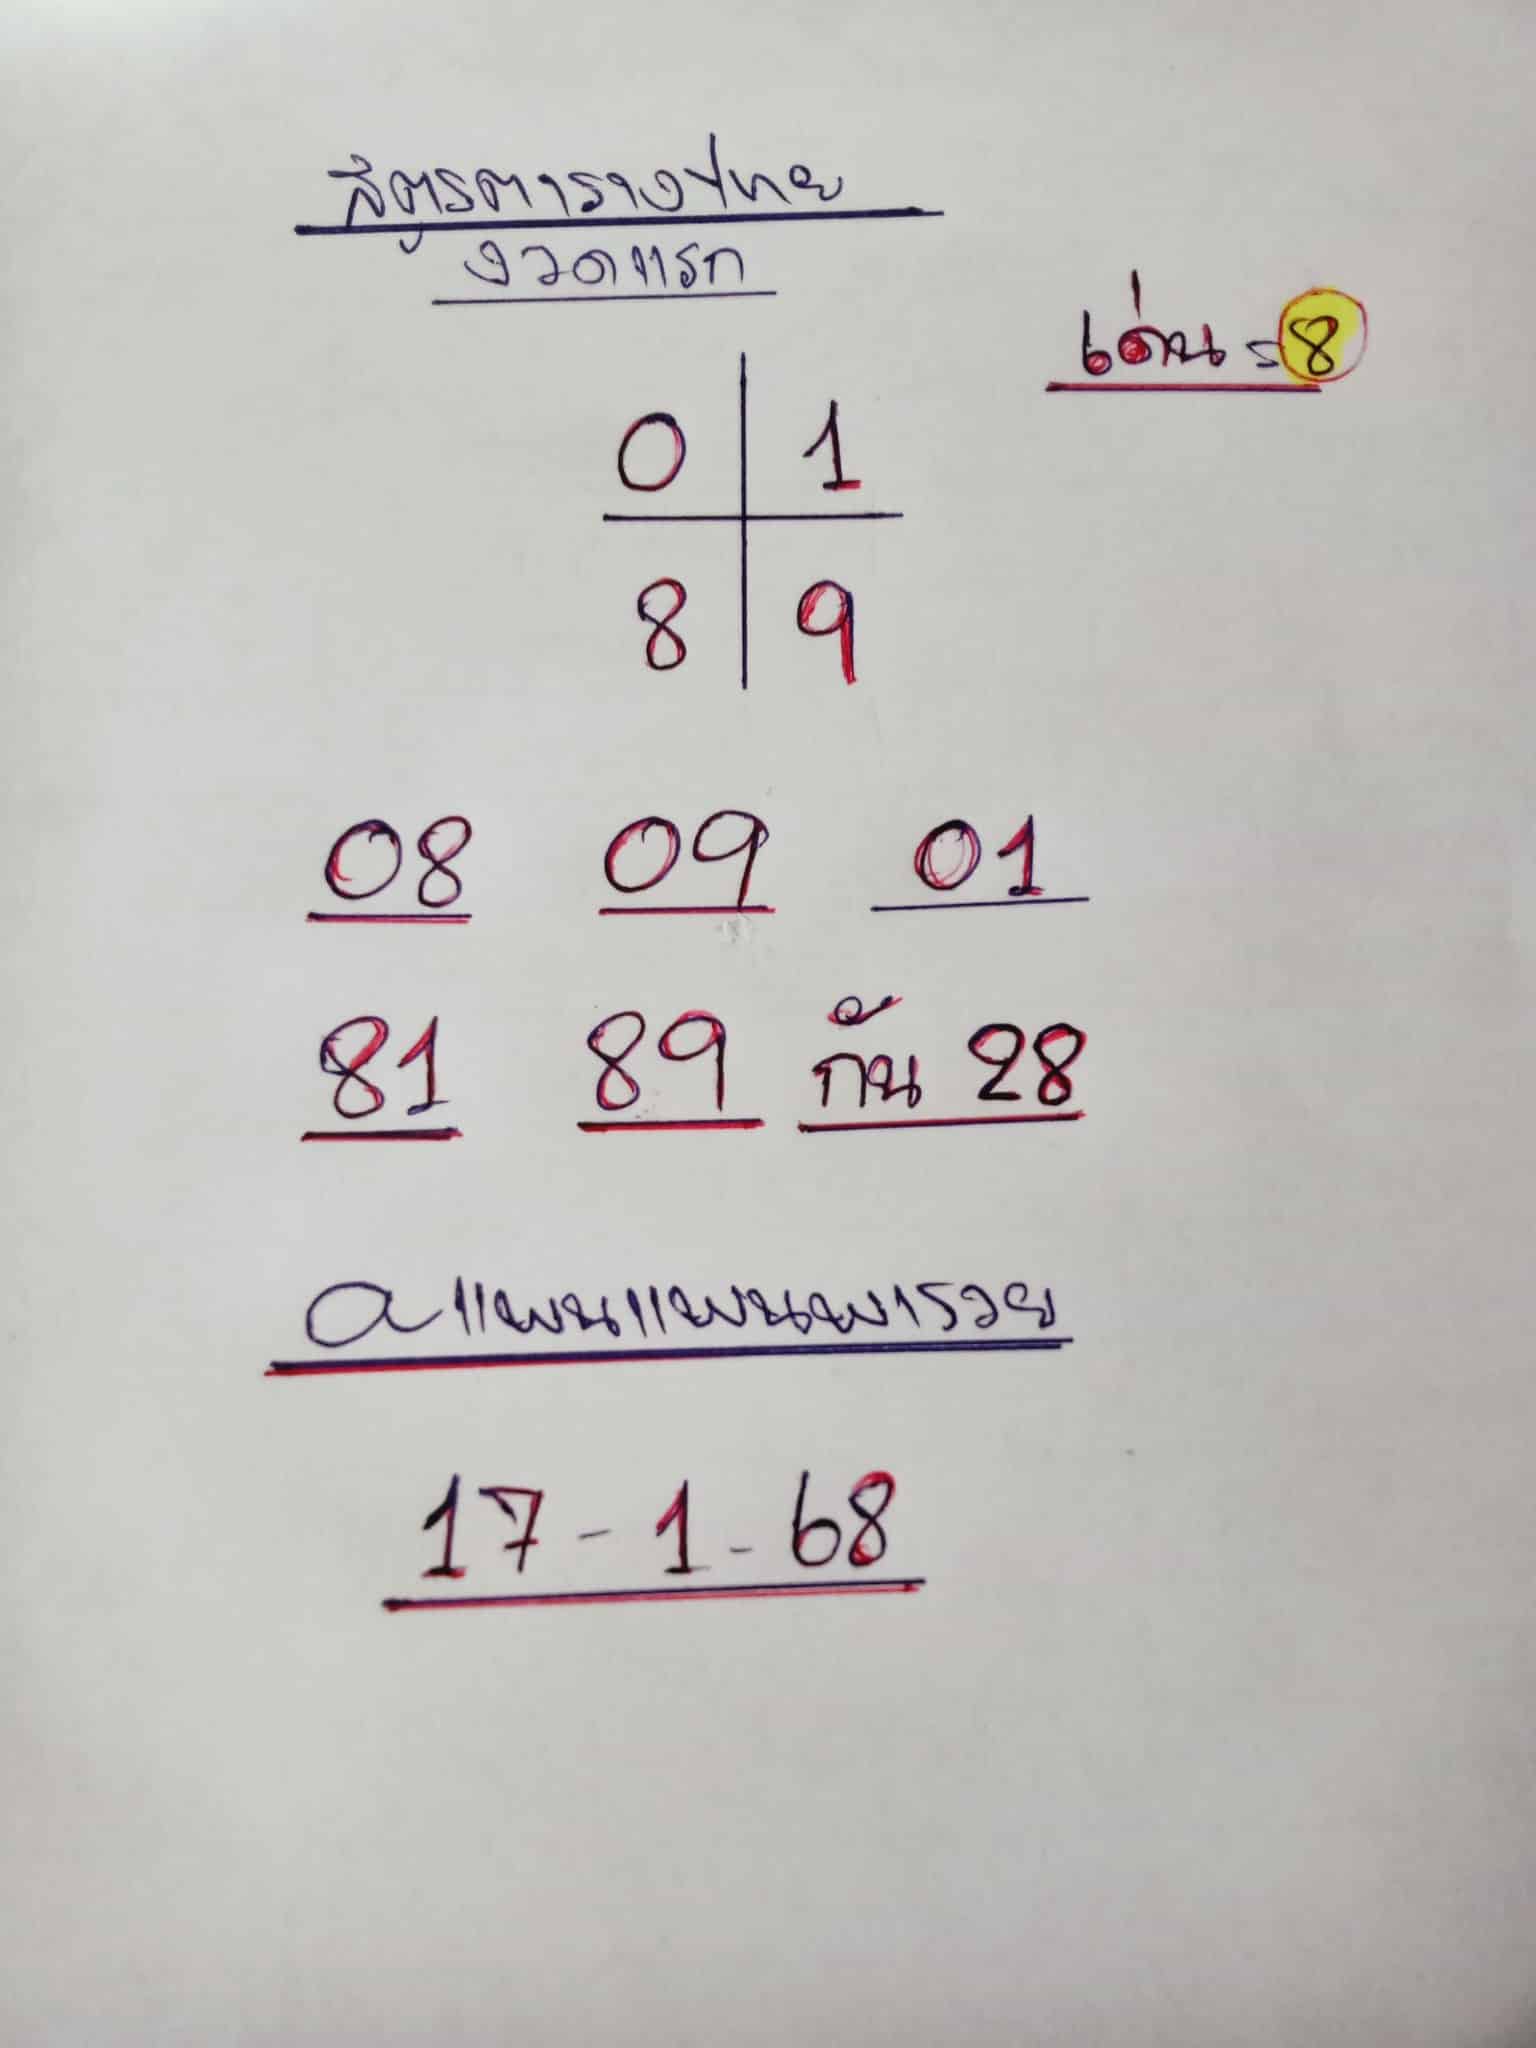 สูตรตารางไทย
งวดแรก
เด่น = 8
0 1
8 9
08 09 01
81 89 กัน 28
a แมนแมนมารวย
17-1-68